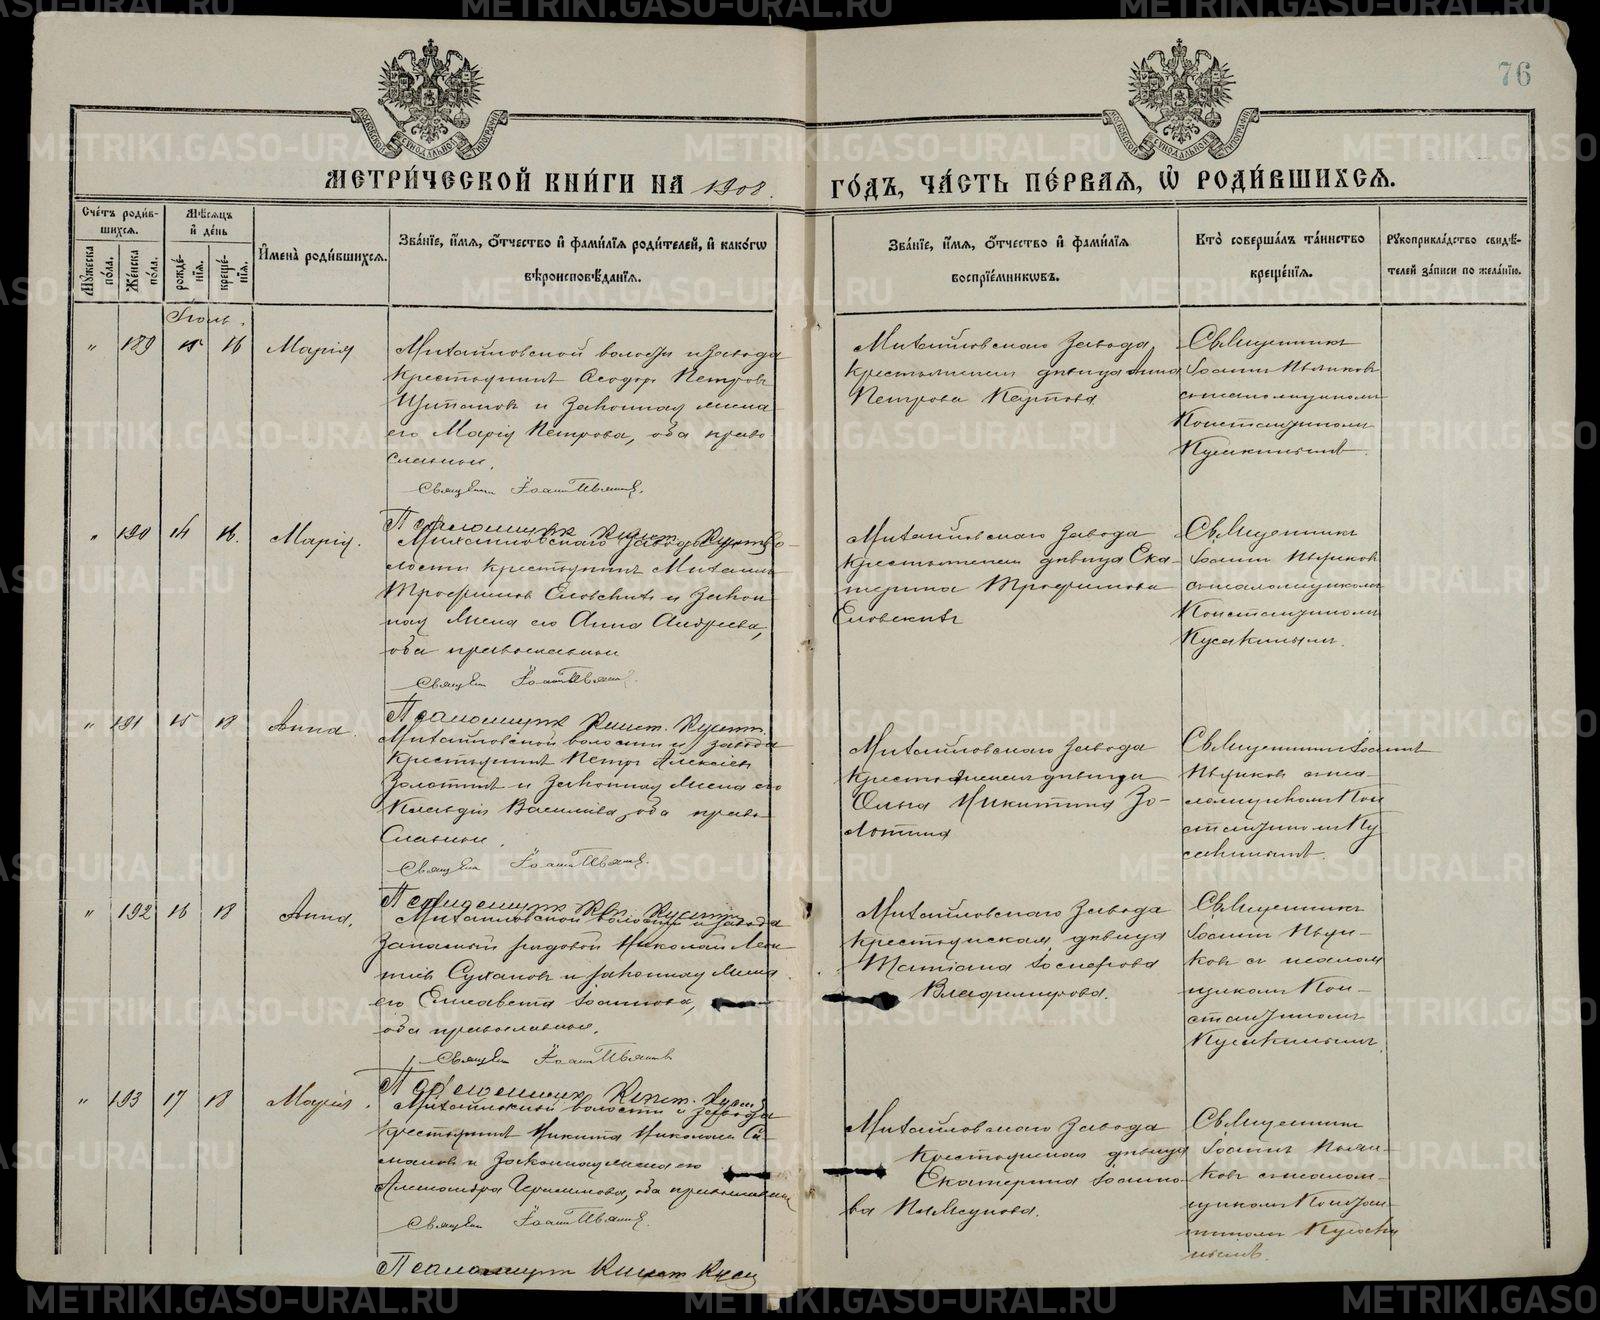 76
МЕТРИ́ЧЕСКОЙ КНИ́ГИ НА 1908. ГО́ДЪ, ЧА́СТЬ ПЕ́РВАЯ, Ѡ҆ РОДИ́ВШИХСЯ.
Сче́тъ роди́вшихся.
Мꙋ́жеска по́ла.
Же́нска по́ла.
Мѣ́сяцъ и҆ де́нь
рожде́нїя.
креще́нїя.
И҆мена̀ роди́вшихся.
Зва́нїе, и҆́мя, ѻ҆́тчество и҆ фами́лїя роди́телей, и҆ како́гѡ вѣроисповѣ́данїя.
Зва́нїе, и҆́мя, ѻ҆́тчество и҆ фами́лїя воспрїе́мникѡвъ.
Кто̀ соверша́лъ та́инство креще́нїя.
Рꙋкоприкла́дство свидѣ́телей за́писи по жела́нїю.
Іюль.
" 189 15 16 Марія
Михайловской волости и завода
крестьянинъ Ѳеодоръ Петровъ
и законная жена
его Марія Петрова, оба право-
славные.
Священн. Іоаннъ
Михайловскаго завода
крестьянская дѣвица Анна
Петрова
Священникъ
Іоаннъ
съ псаломщикомъ
Константиномъ
Кусакинымъ.
Псаломщикъ Конст.
" 190 14 16. Марія.
Михайловскаго завода
лости крестьянинъ Михаилъ
Трофимовъ Еловскихъ и закон-
ная жена его Анна Андреева,
оба православные
Священ. Іоаннъ
Михайловскаго завода
крестьянская дѣвица Ека-
терина Трофимова
Еловскихъ
Священникъ
Іоаннъ
съ псаломщикомъ
Константиномъ
Кусакинымъ.
Псаломщикъ Конст.
" 191 15 18 Анна.
Михайловской волости и завода
крестьянинъ Петръ Алексѣевъ
Золотинъ и законная жена его
Клавдія Васильева, оба право-
славные.
Священ. Іоаннъ
Михайловскаго завода
крестьянская дѣвица
Ольга Никитина Зо-
лотина
Священникъ Іоаннъ
съ пса-
ломщикомъ Кон-
стантиномъ Ку-
сакинымъ.
Псаломщикъ
" 192 16 18 Анна.
Михайловской волости и завода
запасный рядовой Николай Леон-
тіевъ Сухановъ и законная жена
его Елисавета Іоаннова,
оба православные.
Священ. Іоаннъ
Михайловскаго завода
крестьянская дѣвица
Татіана Іосифова
Владимирова.
Священникъ
Іоаннъ
съ псалом-
щикомъ Кон-
стантиномъ
Кусакинымъ.
Псаломщикъ Конст.
" 193 17 18 Марія.
Михайловской волости и завода
крестьянинъ Никита Николаевъ Си-
мановъ и законная жена его
Александра Герасимова, оба православные
Священ. Іоаннъ
Михайловскаго завода
крестьянская дѣвица
Екатерина Іоанно-
ва
Священникъ
Іоаннъ
съ псалом-
щикомъ Констан-
тиномъ Кусаки-
нымъ.
Псаломщикъ Конст.
METRIKI.GASO-URAL.RU